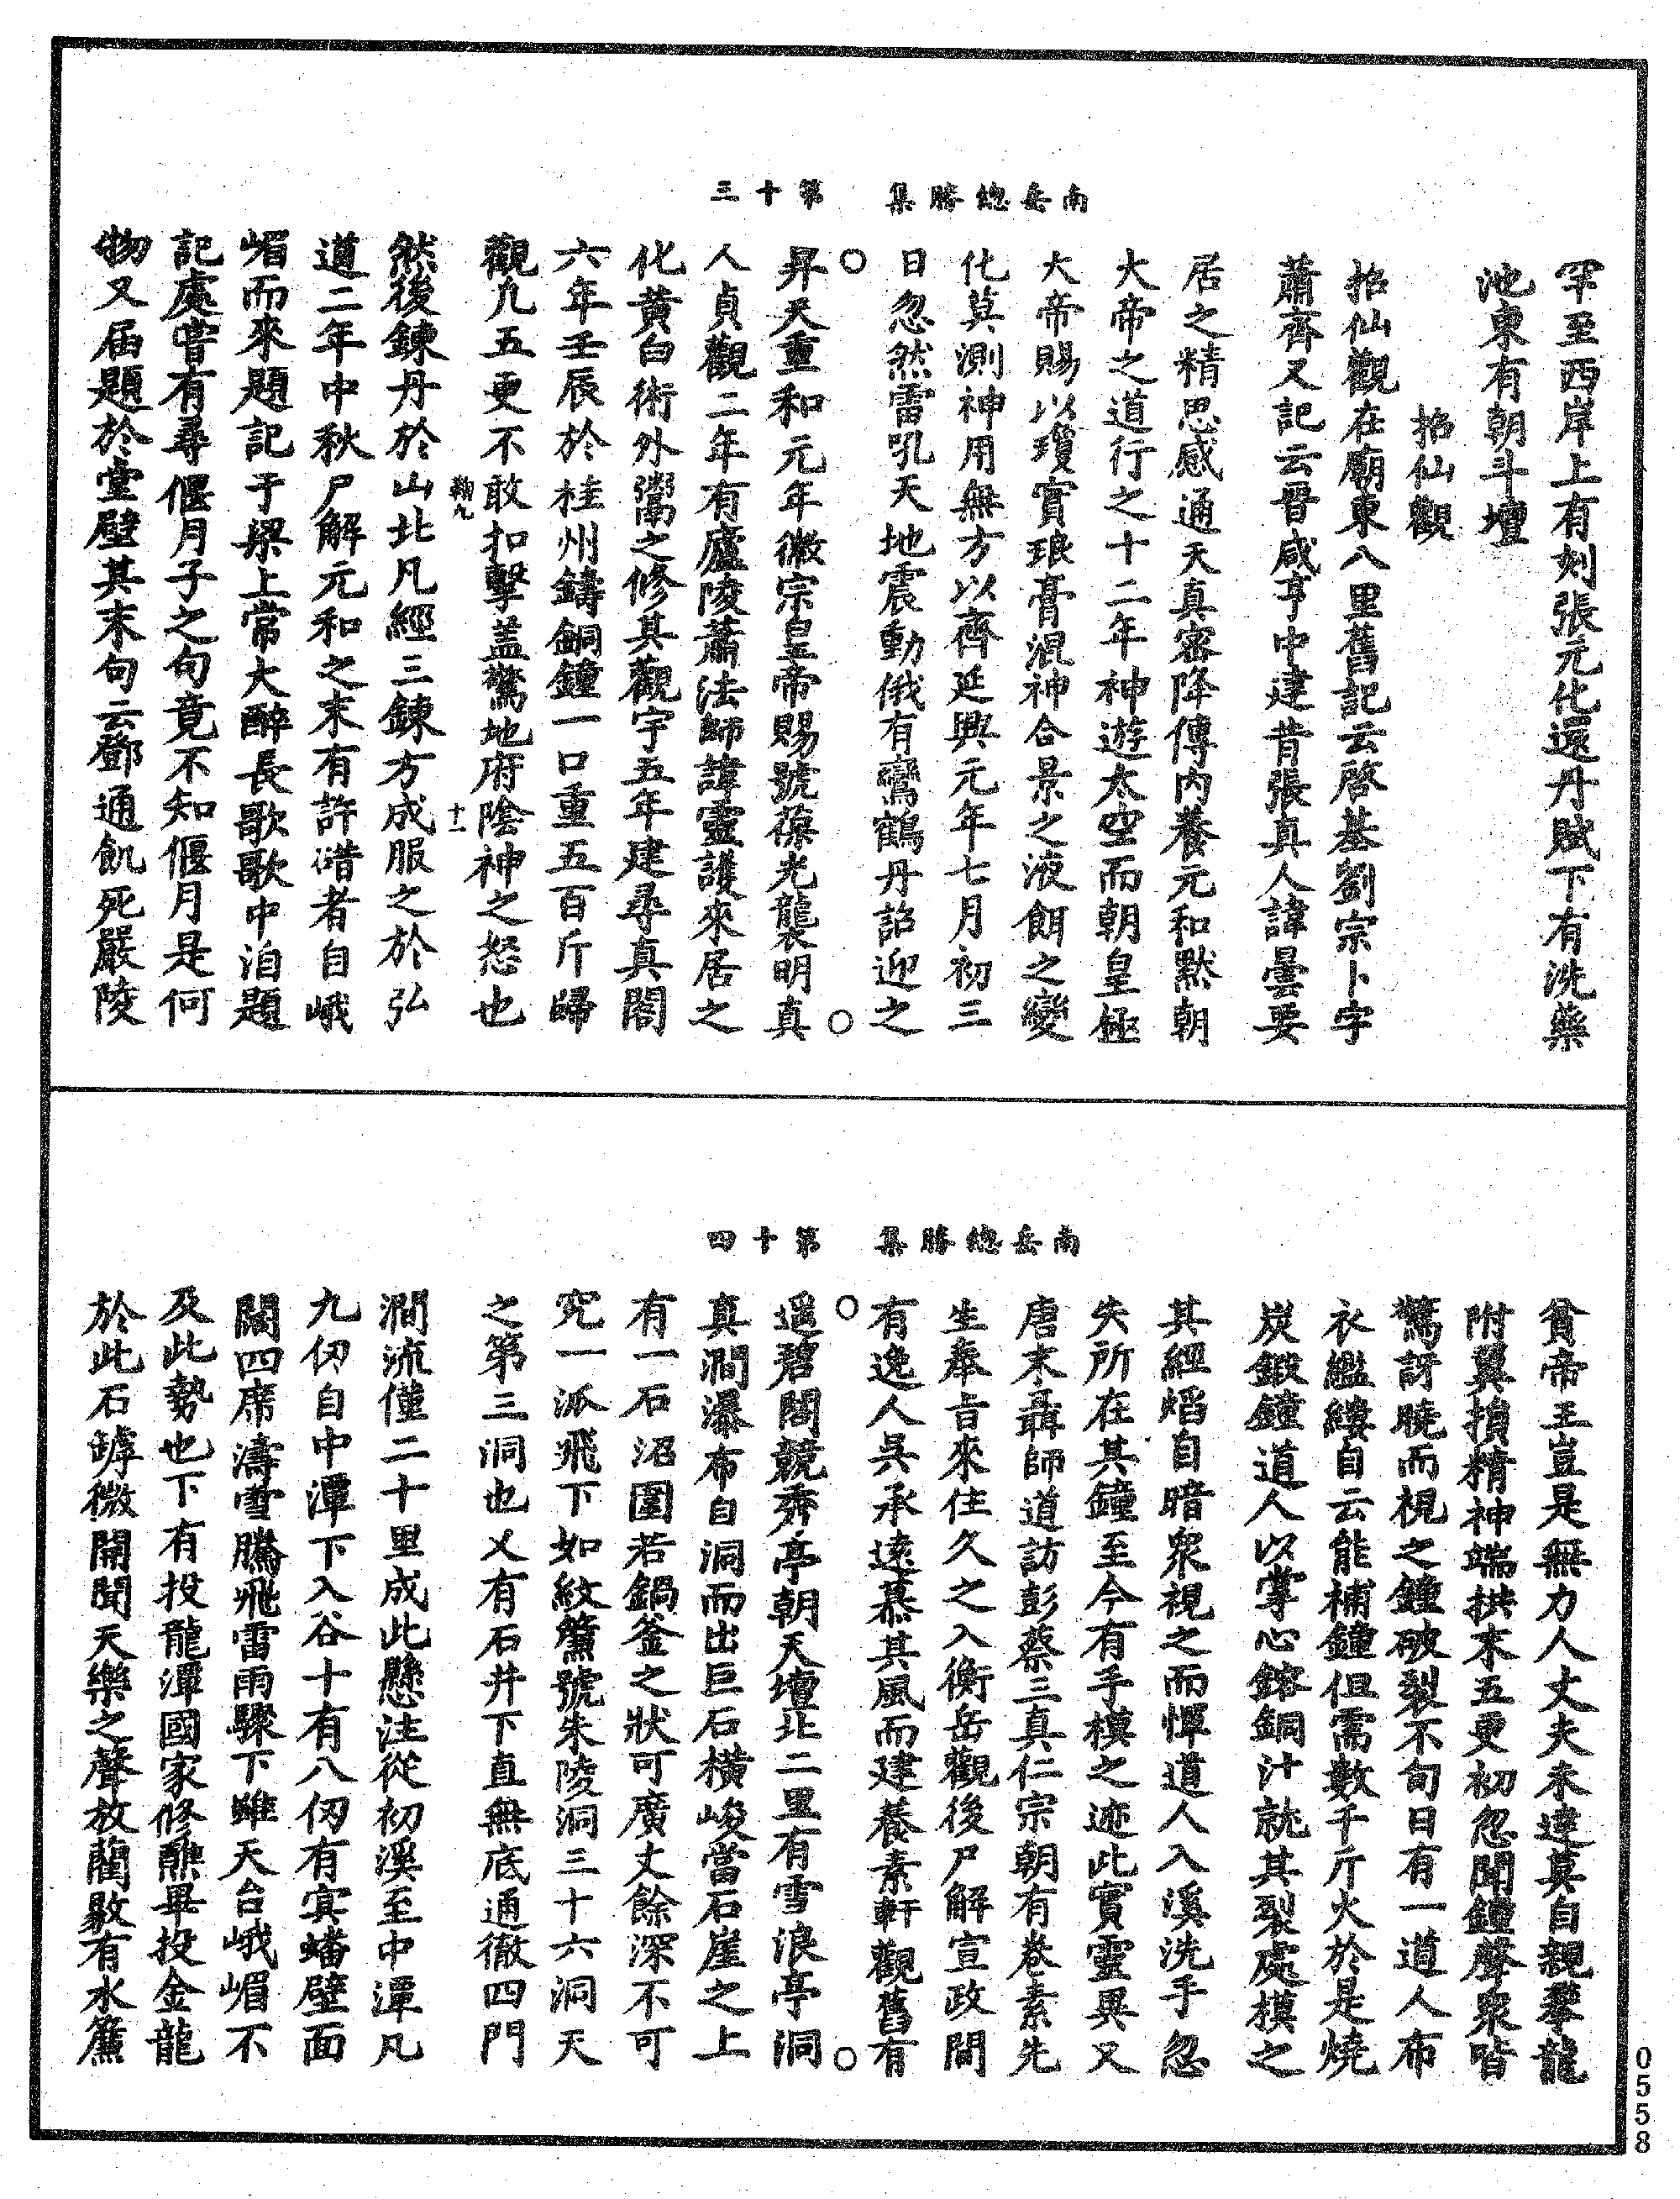 南岳總勝集　第十三
罕至西岸上有刻張元化還丹賦下有洗藥
池東有朝斗壇
招仙觀
招仙觀在廟東八里舊記云啓基劉宗卜宇
蕭齊又記云晉咸亨中建昔張真人諱曇要
居之精思感通天真密降傳內養元和默朝
大帝之道行之十二年神遊太空而朝皇極
大帝賜以瓊實琅膏混神合景之液餌之變
化莫測神用無方以齊延興元年七月初三
日忽然雷吼天地震動俄有鸞鶴丹詔迎之
昇天重和元年徽宗皇帝賜號葆光襲明真
人貞觀二年有廬陵蕭法師諱靈護來居之
化黃白術外鬻之修其觀宇五年建尋真閣
六年壬辰於桂州鑄銅鐘一口重五百斤歸
觀九五更不敢扣擊蓋驚地府陰神之怒也
鞠九　十一
然後鍊丹於山北凡經三鍊方成服之於弘
道二年中秋尸解元和之末有許碏者自峨
嵋而來題記于梁上常大醉長歌歌中洎題
記處嘗有尋偃月子之句竟不知偃月是何
物又届題於堂壁其末句云鄧通飢死嚴陵
南岳總勝集　第十四
貧帝王豈是無力人丈夫未達莫自親攀龍
附翼損精神端拱末五更初忽聞鐘聲衆皆
驚訝曉而視之鐘破裂不旬日有一道人布
衣繿縷自云能補鐘但需數千斤火於是燒
炭鍛鐘道人以掌心鎔銅汁就其裂處模之
其經熖自暗衆視之而憚道人入溪洗手忽
失所在其鐘至今有手模之迹此實靈異又
唐末聶師道訪彭蔡三真仁宗朝有卷素先
生奉旨來住久之入衡岳觀後尸解宣政間
有逸人吳承遠慕其風而建養素軒觀舊有
遥碧閣競秀亭朝天壇北二里有雪浪亭洞
真澗瀑布自洞而出巨石橫峻當石崖之上
有一石沼圍若鍋釜之狀可廣丈餘深不可
究一派飛下如紋簾號朱陵洞三十六洞天
之第三洞也乂有石井下直無底通徹四門
澗流僅二十里成此懸注從初溪至中潭凡
九仞自中潭下入谷十有八仞有寘蟠壁面
闊四席濤雪騰飛雷雨驟下雖天台峨嵋不
及此勢也下有投龍潭國家修醮畢投金龍
於此石罅微開聞天樂之聲放藺敭有水簾
0558